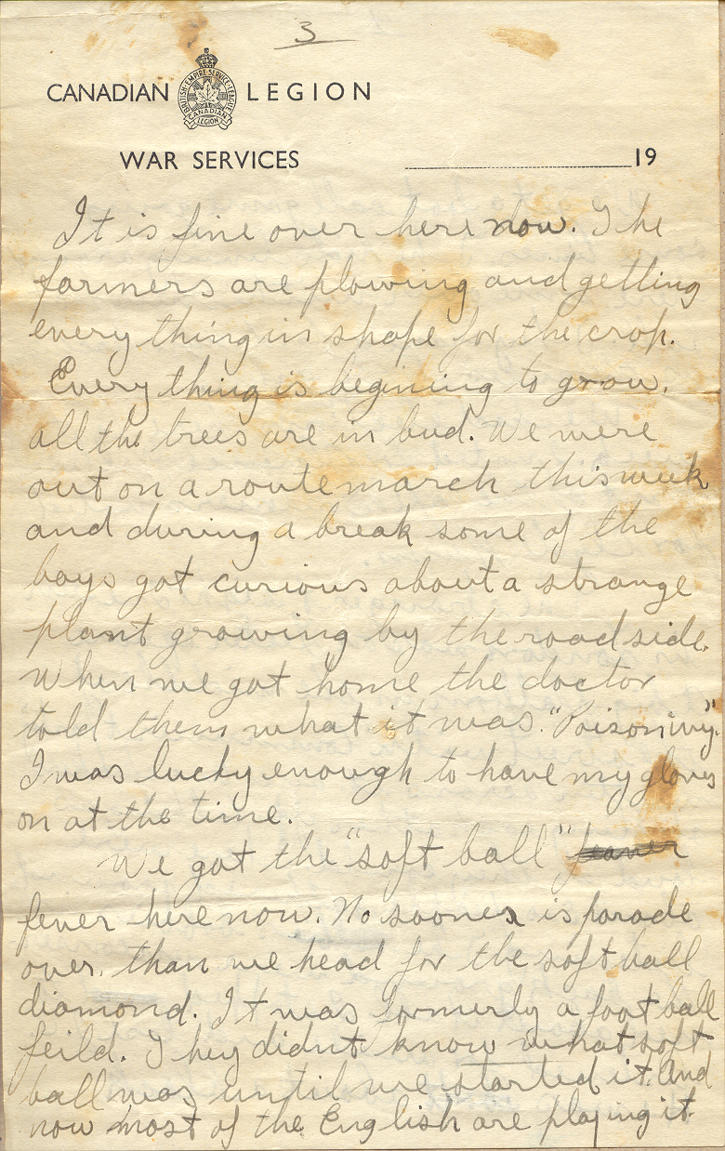 3
CANADIAN LEGION
BRITISH EMPIRE SERVICE LEAGUE
CANADIAN LEGION
WAR SERVICES 19
It is fine over here now. The
farmers are plowing and getting
every thing in shape for the crop.
Every thing is begining to grow.
all the trees are in bud. We were
out on a route march this week
and during a break some of the
boys got curious about a strange
plant growing by the road side.
When we got home the doctor
told them what it was. "Poison ivy".
I was lucky enough to have my gloves
on at the time.
We got the "soft ball"
fever here now. No sooner is parade
over, than we head for the soft ball
diamond. It was formerly a foot ball
feild. They didnt know what soft
ball was until we started it. And
now most of the English are playing it.